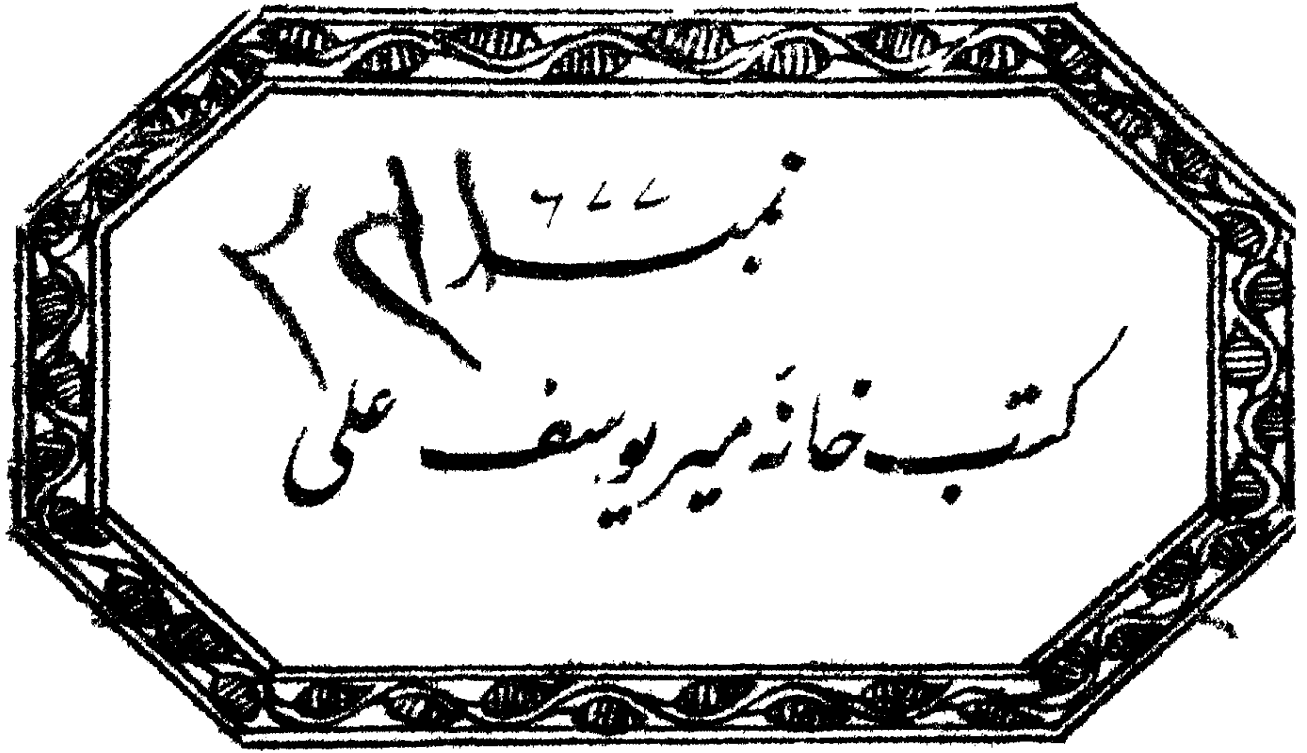 نمبر
کتب خانۂ میر یوسف علی